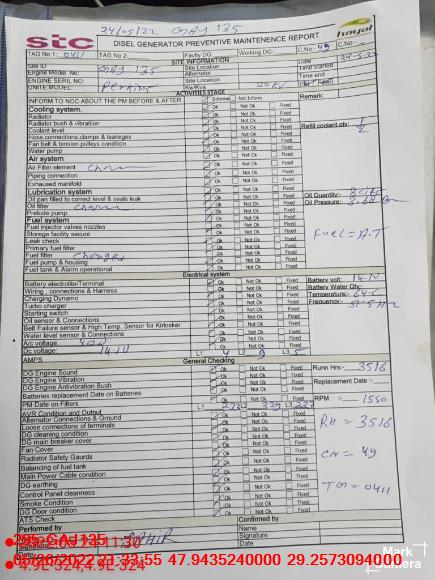 24/05/22 GAJ 135
stc
hayat
DISEL GENERATOR PREVENTIVE MAINTENENCE REPORT
TAG No 1: 0411 TAG No 2: Faulty DG: Working DG: C.No: 49 C.No:
SITE INFORMATION
Site ID GAJ 135 Site Location Date 24-5-22
Engine Model No: Alternator Time started
ENGINE SERIL NO: Site Location Time end
UNITE MODEL Perkins Kw/Kva
ACTIVITIES STAGE
INFORM TO NOC ABOUT THE PM BEFORE & AFTER Informer Not Inform Remark:
Cooling system. Ok Not Ok Fixed
Radiator Ok Not Ok Fixed
Radiator bush & vibration Ok Not Ok Fixed
Coolant level Ok Not Ok Fixed Refill coolant qty: 1/2
Hose,connections,clamps & leakeges Ok Not Ok Fixed
Fan belt & tension pulleys condition Ok Not Ok Fixed
Water pump Ok Not Ok Fixed
Air system
Air Filter element Ok Not Ok Fixed
Piping connection Ok Not Ok Fixed
Exhaused manifold Ok Not Ok Fixed
Lubrication system Ok Not Ok Fixed
Oil pan filled to correct level & seals leak Ok Not Ok Fixed Oil Quantity:-
Oil filter Ok Not Ok Fixed Oil Pressure:
Prelude pump. Ok Not Ok Fixed
Fuel system
Fuel injector valves nozzles Ok Not Ok Fixed
Storage facility secure Ok Not Ok Fixed Fuel = A.T
Leak check Ok Not Ok Fixed
Primary fuel filter Ok Not Ok Fixed
Fuel filter changed Ok Not Ok Fixed
Fuel pump & housing Ok Not Ok Fixed
Fuel tank & Alarm operational Ok Not Ok Fixed
Electrical system
Battery electrolite/Terminal Ok Not Ok Fixed Battery volt: 14.1V
Wiring , connections & Harness Ok Not Ok Fixed Battery Water Qty:-
Charging Dynamo Ok Not Ok Fixed Temperature:- 64 C
Turbo charger Ok Not Ok Fixed Frequency:- 51.5 Hz
Starting switch Ok Not Ok Fixed
Oil sensor & Connections Ok Not Ok Fixed
Belt Failure sensor & High Temp, Sensor for Kirlosker Ok Not Ok Fixed
Water level sensor & Connections Ok Not Ok Fixed
A/c voltage 400
Dc voltage: 14.1V
AMPS L1 4 L2 9 L3 5
General Checking
DG Engine Sound Ok Not Ok Fixed Runn Hrs:- 3516
DG Engine Vibration Ok Not Ok Fixed
DG Engine Antivibration Bush Ok Not Ok Fixed Replacement Date :-
Batteries replacement Date on Batteries Ok Not Ok Fixed
PM Date on Filters Ok Not Ok Fixed RPM :- 1550
AVR Condition and Output L1 L2 L3
Alternator Connections & Ground Ok Not Ok Fixed RH = 3516
Loose connections of terminals Ok Not Ok Fixed
DG cleaning condition Ok Not Ok Fixed
DG main breaker cover Ok Not Ok Fixed CN = 49
Fan Cover Ok Not Ok Fixed
Radiator Safety Gaurds Ok Not Ok Fixed
Balancing of fuel tank Ok Not Ok Fixed
Main Power Cable condition Ok Not Ok Fixed TG = 0411
DG earthing Ok Not Ok Fixed
Control Panel cleanness Ok Not Ok Fixed
Smoke Condition Ok Not Ok Fixed
DG Door condition Ok Not Ok Fixed
ATS Check Ok Not Ok Fixed
Performed by Confirmed by
Name
Signature
Date
Mark
Camera
295-GAJ135
05/26/2022 21:33:55 47.9435240000 29.2573094000
4.9L-324,4.9L-324